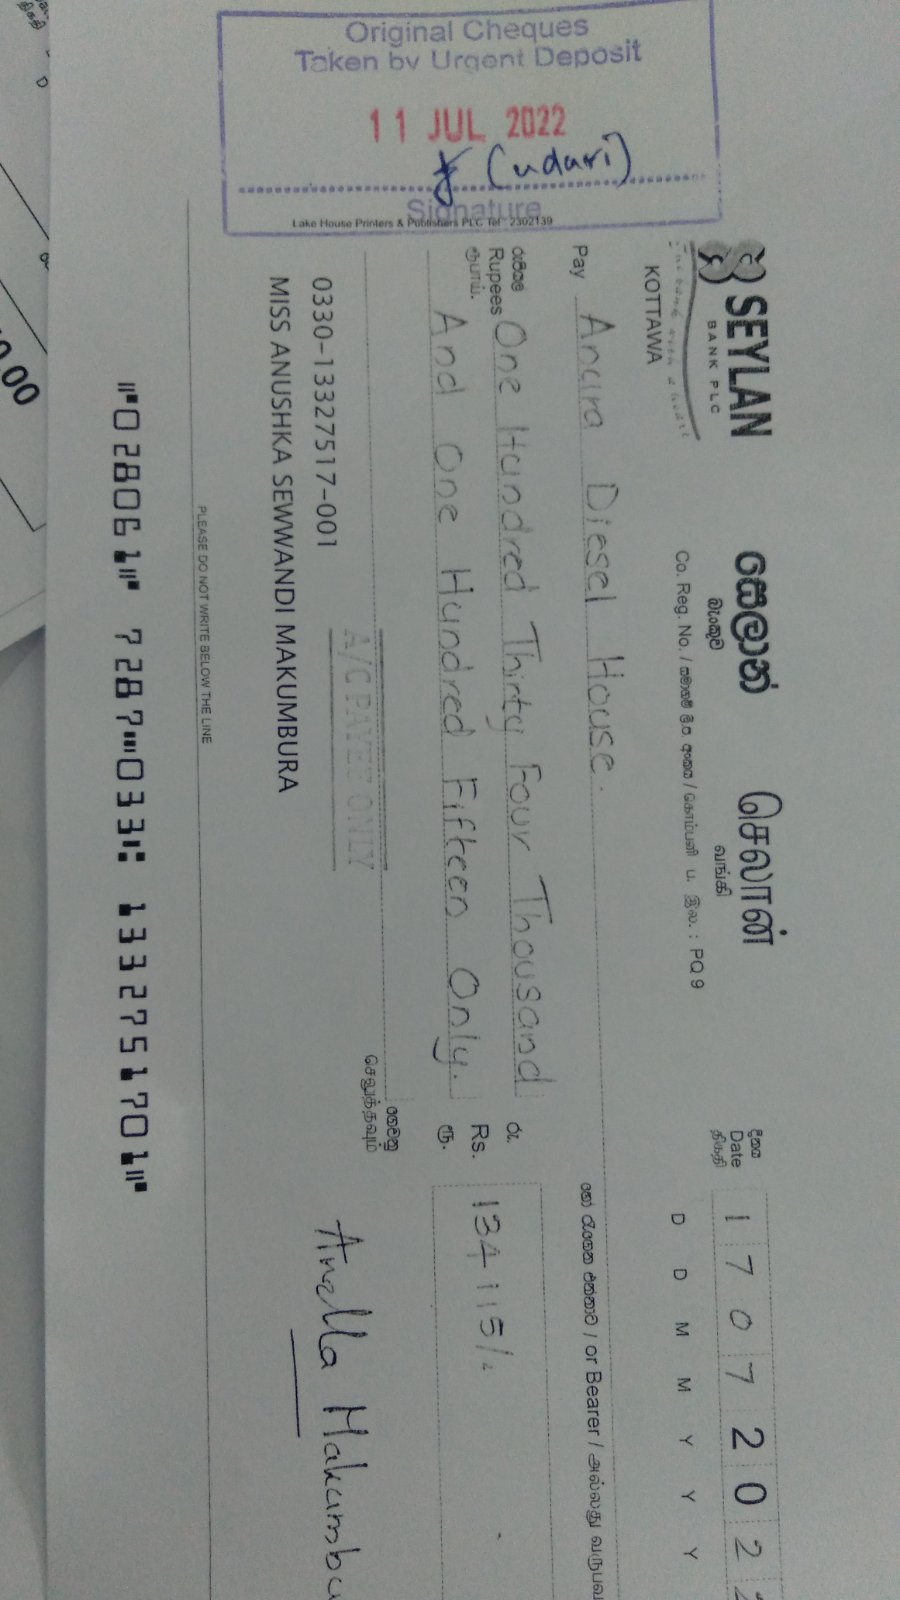 Original Cheques
Taken by Urgent Deposit
11 JUL 2022
(udari)
Signature
Lake House Printers & Publishers PLC Tel : 2302139
SEYLAN
BANK PLC
සෙලාන්
බැංකුව
செலான்
வங்கி
KOTTAWA
Co. Reg. No. /
PQ 9
දිනය
Date
திகதி
1 7 0 7 2 0 2 2
D D M M Y Y Y
Pay Anura Diesel House.
or Bearer /
රුපියල්
Rupees
ரூபாய்.
One Hundred Thirty Four Thousand
And One Hundred Fifteen Only.
රු.
Rs.
ரூ.
134 115/-
ගෙවනු
செலுத்தவும்
A/C PAYEE ONLY
0330-13327517-001
MISS ANUSHKA SEWWANDI MAKUMBURA
Makumbu
PLEASE DO NOT WRITE BELOW THE LINE
⑈028061⑈ 7287⑉033⑆ 1332751701⑈